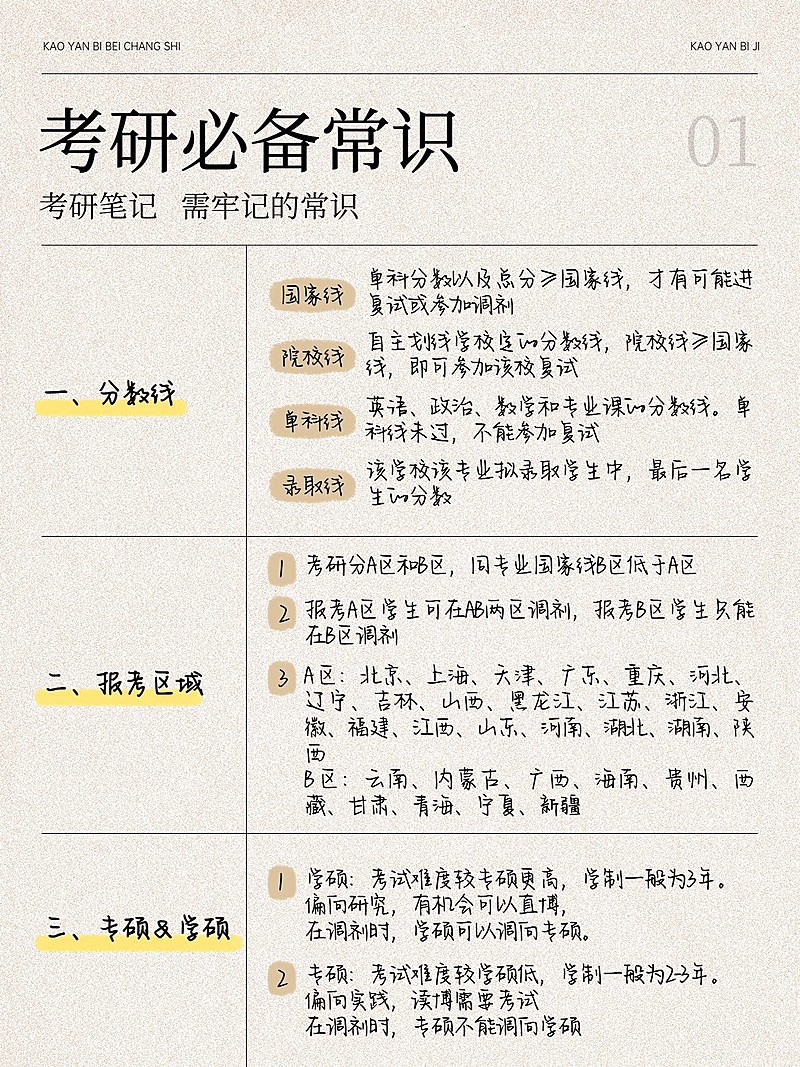 KAO YAN BI BEI CHANG SHI
KAO YAN BI JI
考研必备常识
01
考研笔记 需牢记的常识
一、分数线
国家线
单科分数以及总分≥国家线，才有可能进
复试或参加调剂
院校线
自主划线学校定的分数线，院校线≥国家
线，即可参加该校复试
单科线
英语、政治、数学和专业课的分数线。单
科线未过，不能参加复试
录取线
该学校该专业拟录取学生中，最后一名学
生的分数
二、报考区域
1
考研分A区和B区，同专业国家线B区低于A区
2
报考A区学生可在AB两区调剂，报考B区学生只能
在B区调剂
3
A区：北京、上海、天津、广东、重庆、河北、
辽宁、吉林、山西、黑龙江、江苏、浙江、安
徽、福建、江西、山东、河南、湖北、湖南、陕
西
B区：云南、内蒙古、广西、海南、贵州、西
藏、甘肃、青海、宁夏、新疆
三、专硕&学硕
1
学硕：考试难度较专硕更高，学制一般为3年。
偏向研究，有机会可以直博，
在调剂时，学硕可以调向专硕。
2
专硕：考试难度较学硕低，学制一般为2-3年。
偏向实践，读博需要考试
在调剂时，专硕不能调向学硕